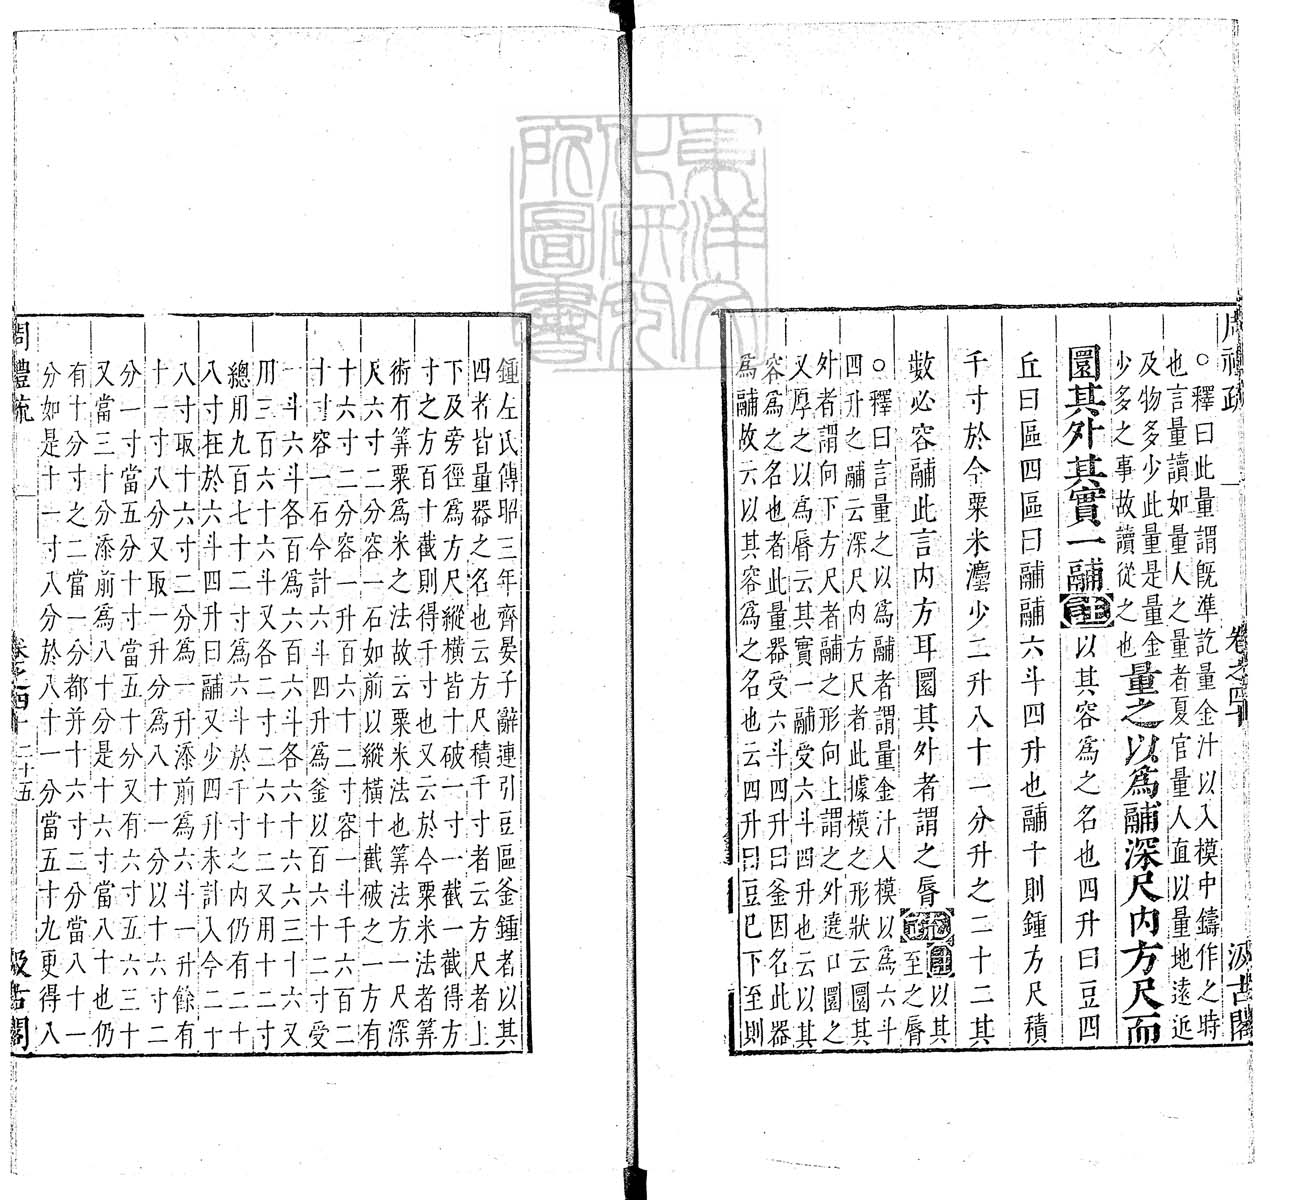 東洋文
化研究
所圖書
周禮疏 卷之四十 汲古閣
○釋曰此量謂旣準訖量金汁以入模中鑄作之時
也言量讀如量人之量者夏官量人直以量地遠近
及物多少此量是量金
少多之事故讀從之也量之以爲鬴深尺内方尺而
圜其外其實一鬴註以其容爲之名也四升曰豆四
丘曰區四區曰鬴鬴六斗四升也鬴十則鍾方尺積
千寸於今粟米灋少二升八十一分升之二十二其
數必容鬴此言内方耳圜其外者謂之脣疏註以其
至之脣
○釋曰言量之以爲鬴者謂量金汁入模以爲六斗
四升之鬴云深尺内方尺者此據模之形狀云圜其
外者謂向下方尺者鬴之形向上謂之外遶口圜之
又厚之以爲脣云其實一鬴受六斗四升也云以其
容爲之名也者此量器受六斗四升曰釜因名此器
爲鬴故云以其容爲之名也云四升曰豆巳下至則
鍾左氏傳昭三年齊晏子辭連引豆區釜鍾者以其
四者皆量器之名也云方尺積千寸者云方尺者上
下及旁徑爲方尺縱橫皆十破一寸一截一截得方
寸之方百十截則得千寸也又云於今粟米法者筭
術有筭粟爲米之法故云粟米法也筭法方一尺深
尺六寸二分容一石如前以縱橫十截破之一方有
十六寸二分容一升百六十二寸容一斗千六百二
十寸容一石今計六斗四升爲釜以百六十二寸受
一斗六斗各百爲六百六斗各六十六六三十六又
用三百六十六斗又各二寸二六十二又用十二寸
總用九百七十二寸爲六斗於千寸之内仍有二十
八寸在於六斗四升曰鬴又少四升未計入今二十
八寸取十六寸二分爲一升添前爲六斗一升餘有
十一寸八分又取一升分爲八十一分以十六寸二
分一寸當五分十寸當五十分又有六寸五六三十
又當三十分添前爲八十分是十六寸當八十也仍
有十分寸之二當一分都并十六寸二分當八十一
分如是十一寸八分於八十一分當五寸九更得入
周禮疏 卷之四十 二十五 汲古閣